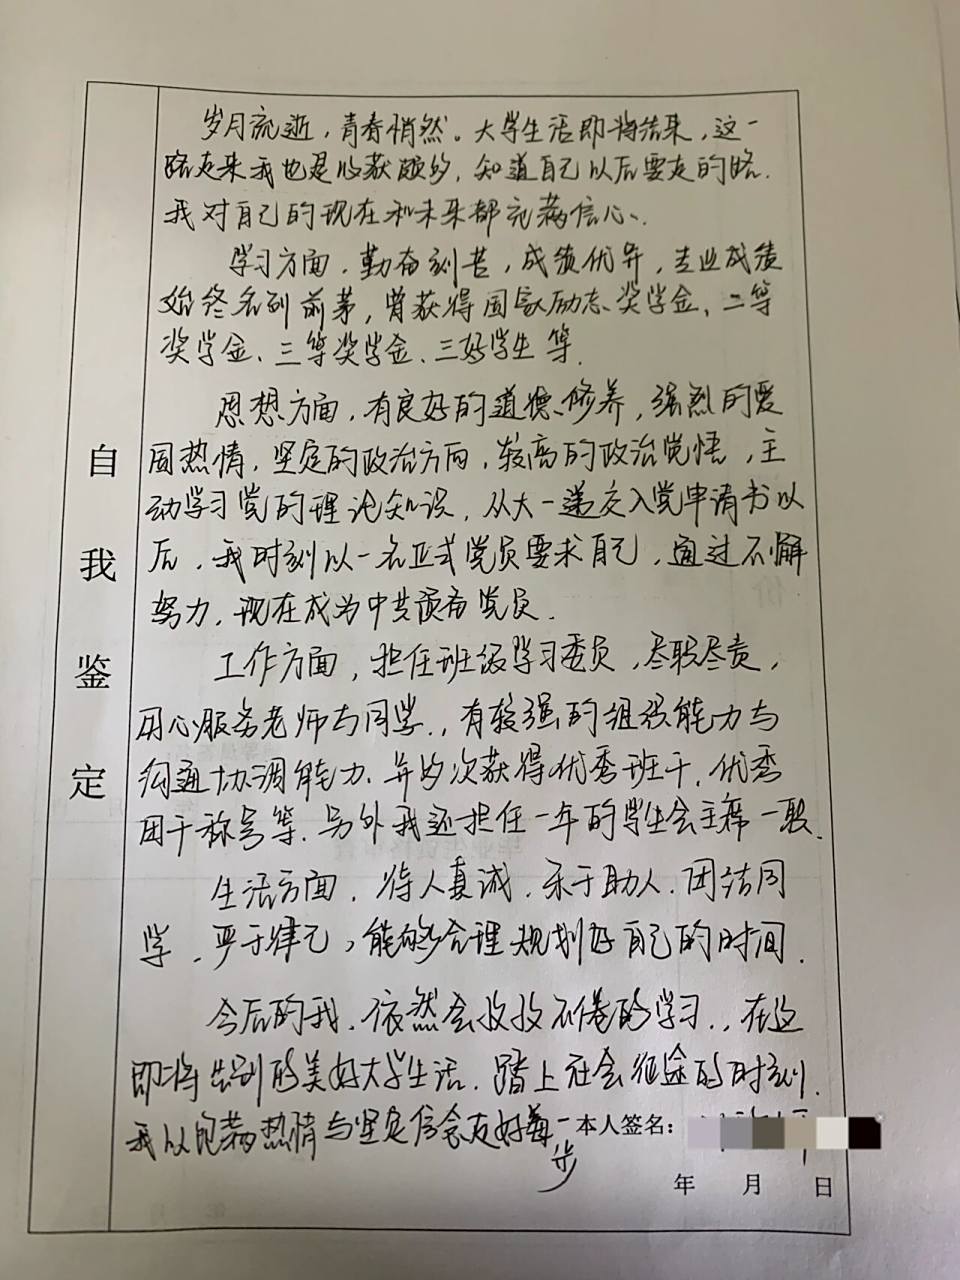 岁月流逝，青春悄然。大学生活即将结束，这一
路走来我也是收获颇多，知道自己以后要走的路.
我对自己的现在和未来都充满信心、
学习方面，勤奋刻苦，成绩优异，专业成绩
始终名列前茅，曾获得国家励志奖学金、二等
奖学金、三等奖学金、三好学生等.
思想方面，有良好的道德修养，强烈的爱
国热情，坚定的政治方向，较高的政治觉悟，主
动学习党的理论知识，从大一递交入党申请书以
后，我时刻以一名正式党员要求自己，通过不懈
努力，现在成为中共预备党员.
工作方面，担任班级学习委员，尽职尽责，
用心服务老师与同学.，有较强的组织能力与
沟通协调能力、并多次获得优秀班干，优秀
团干称号等.另外我还担任一年的学生会主席一职.
生活方面，待人真诚，乐于助人.团结同
学，严于律己，能够合理规划好自己的时间.
今后的我，依然会孜孜不倦的学习.，在这
即将告别的美好大学生活，踏上社会征途的时刻.
我以饱满热情与坚定信念走好每一步
自我鉴定
本人签名：
年 月 日